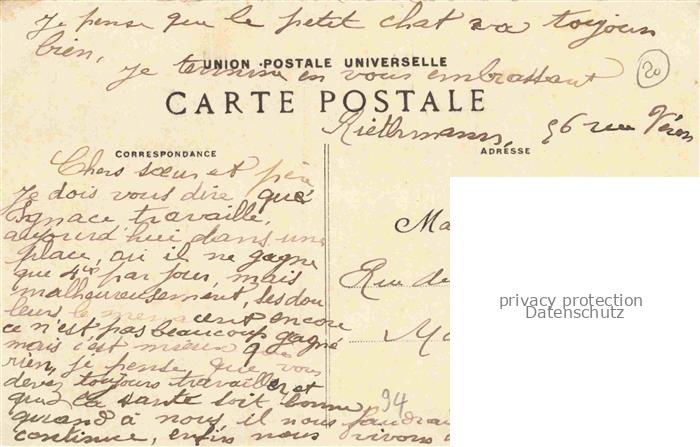 Je pense que le petit chat va toujours
bien,
je termine en vous embrassant
UNION POSTALE UNIVERSELLE
20
CARTE POSTALE
56 rue
CORRESPONDANCE
ADRÉSSE
Chers sœur et frère
Je dois vous dire que
Ignace travaille,
aujourd'hui dans une
place, où il ne gagne
que 4 par jour, mais
malheureusement, ses dou
leurs le encore
ce n'est pas beaucoup gagné
mais c'est mieux que
rien, je pense que vous
devez toujours travailler et
que la santé soit bonne
quand à nous il nous faudrai
continue, enfin nous vivons
Ma
Rue de
94
privacy protection
Datenschutz